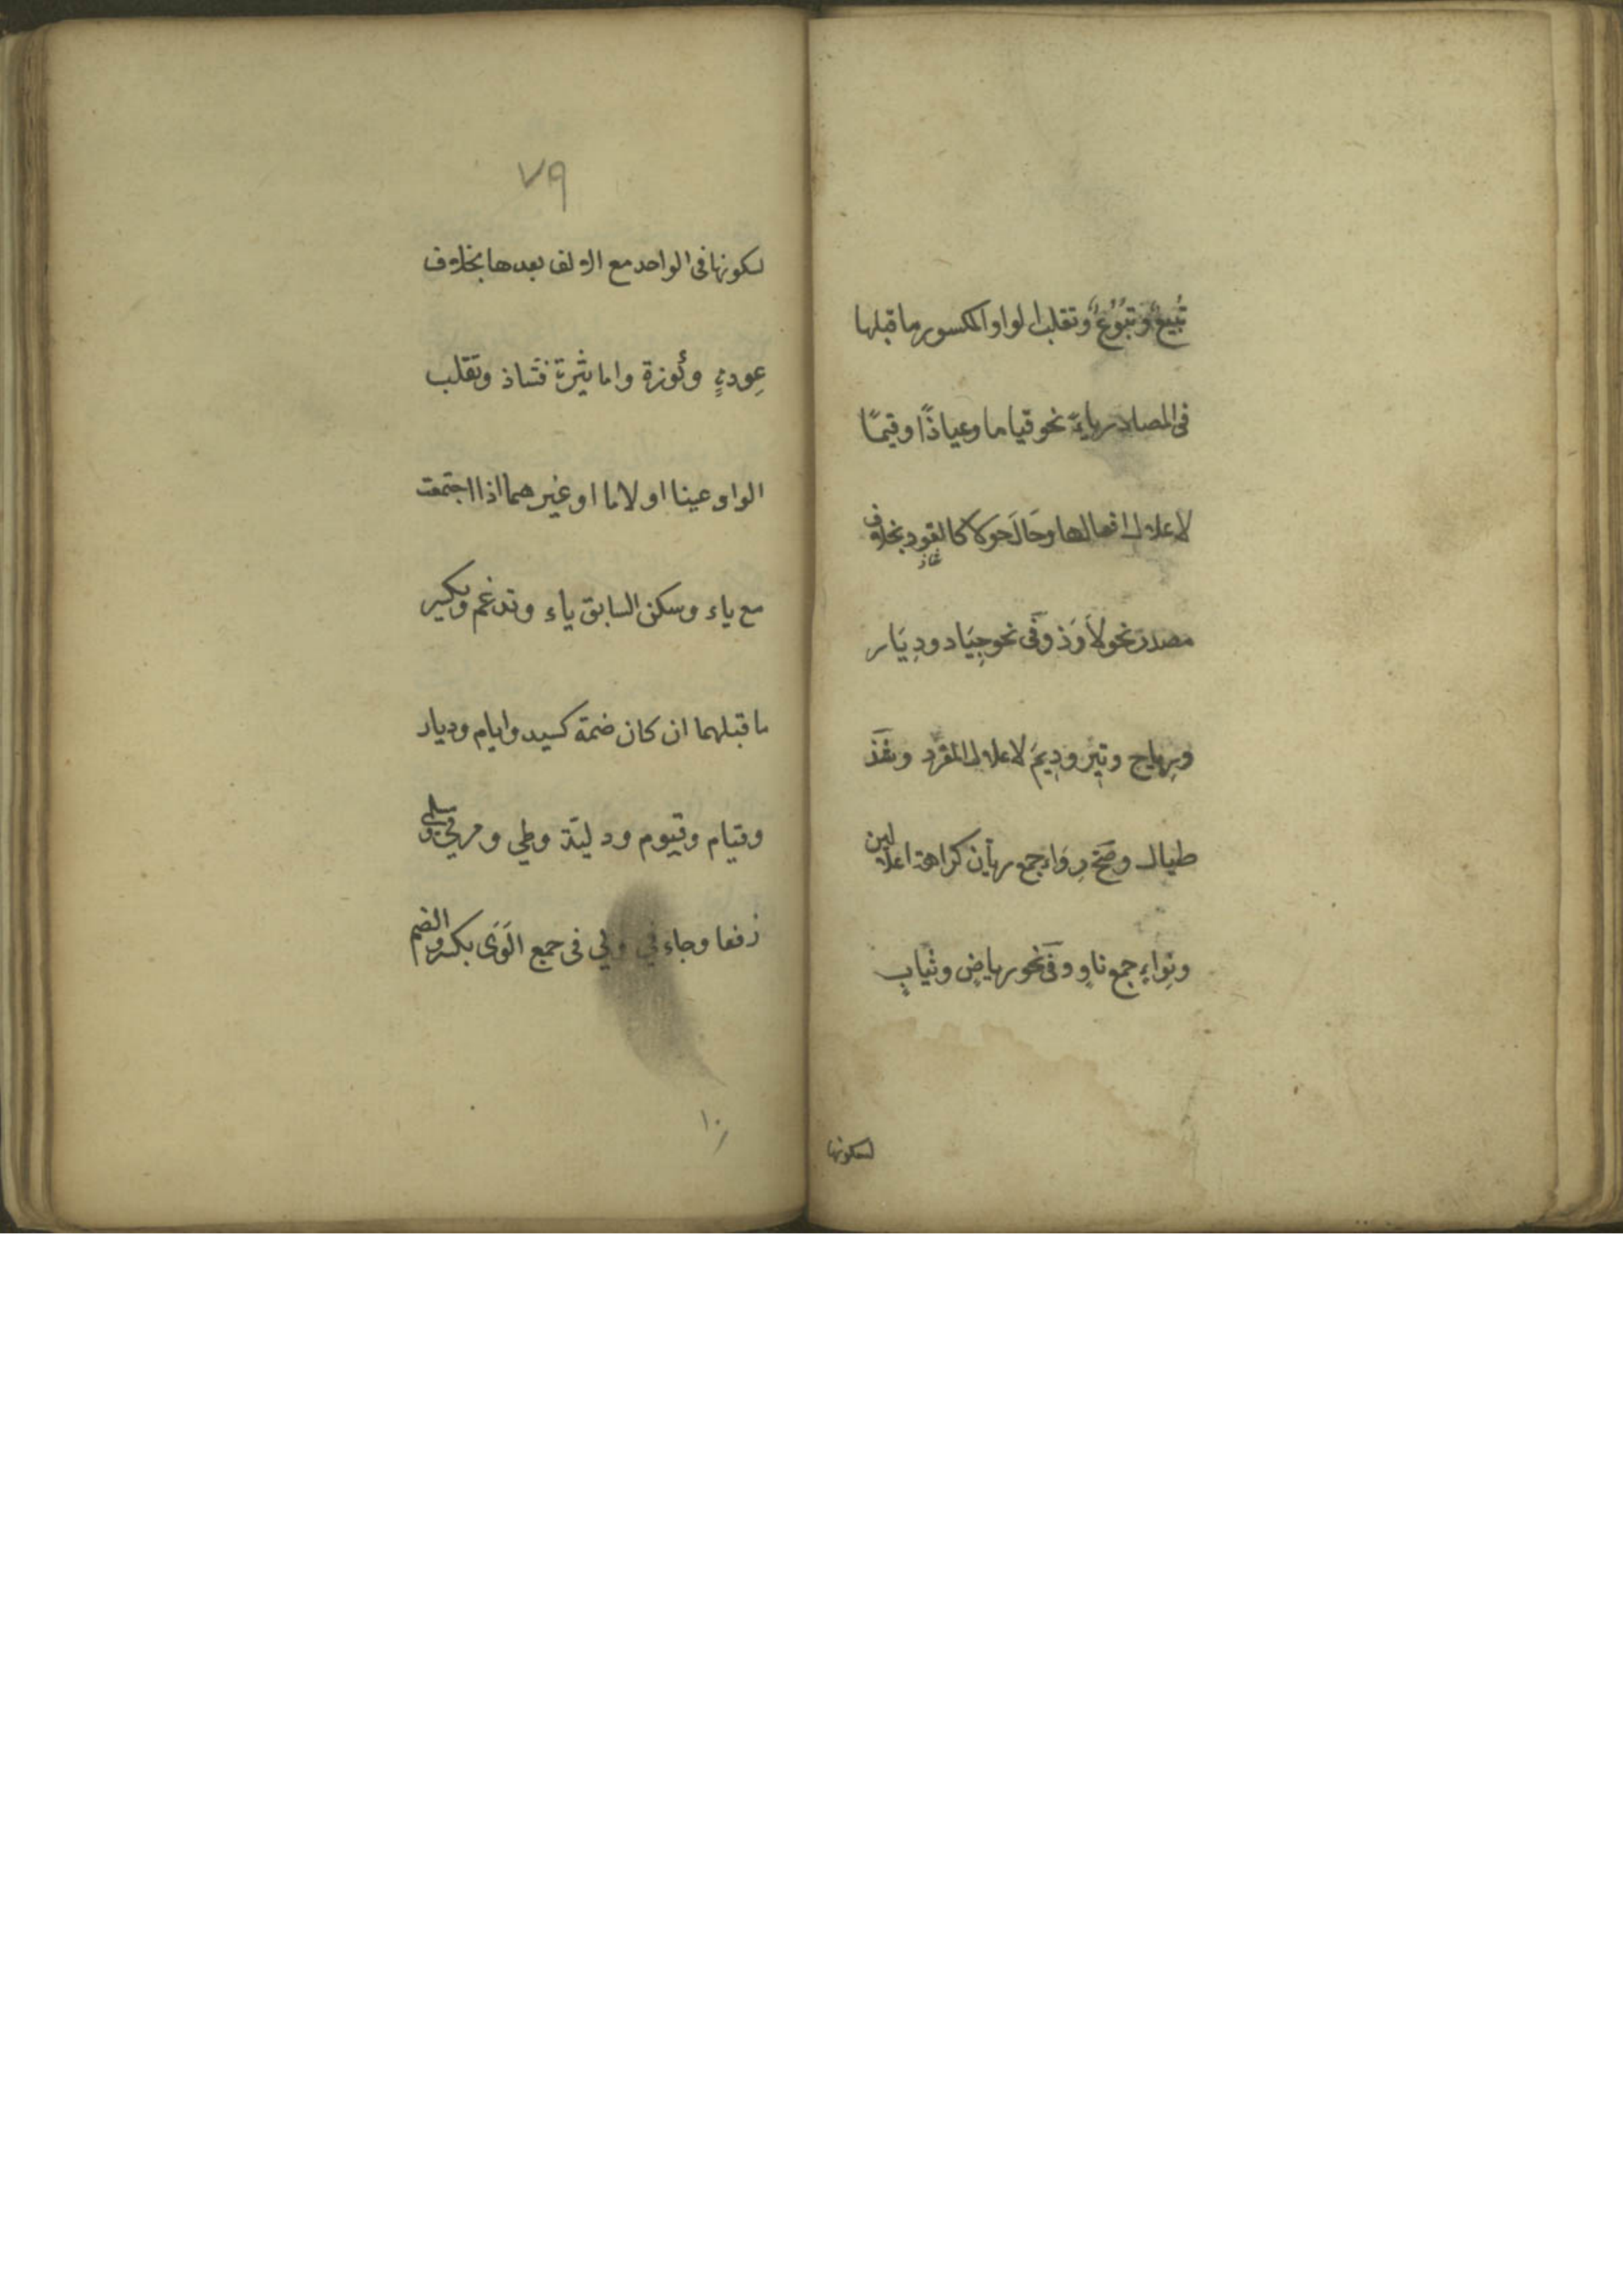 تُبِيعٌ وتُبُوعٌ وتقلب الواو المكسور ما قبلها
فى المصادر ياءً نحو قياما وعياذًا وقيمًا
لاعلال افعالها وحَالَ حولا كالقود بخلاف
شاذ
مصدر نحو لاَوَذَ وفى نحو جِيَاد ودِيَار
ورِياح وتِيَر ودِيَم لاعلال المفرد وشذّ
طيال وصحّ رِوَاء جمع ريّان كراهة اعلالين
ونِوَاءٍ جمع ناوٍ وفى نحو رياضٍ وثيابٍ
لسكونها
٧٩
لسكونها فى الواحد مع الالف بعدها بخلاف
عِودةٍ وكُوزة واما ثيرة فشاذ وتقلب
الواو عينا او لاما او غيرهما اذا اجتمعت
مع ياء وسكن السابق ياء وتدغم ويكسر
ما قبلهما ان كان ضمة كسيد وايام وديار
وقيام وقيوم ودليّة وطي ومرمي ومسلمي
رفعا وجاء لي فى جمع الْوَى بكسر والضم
١٠